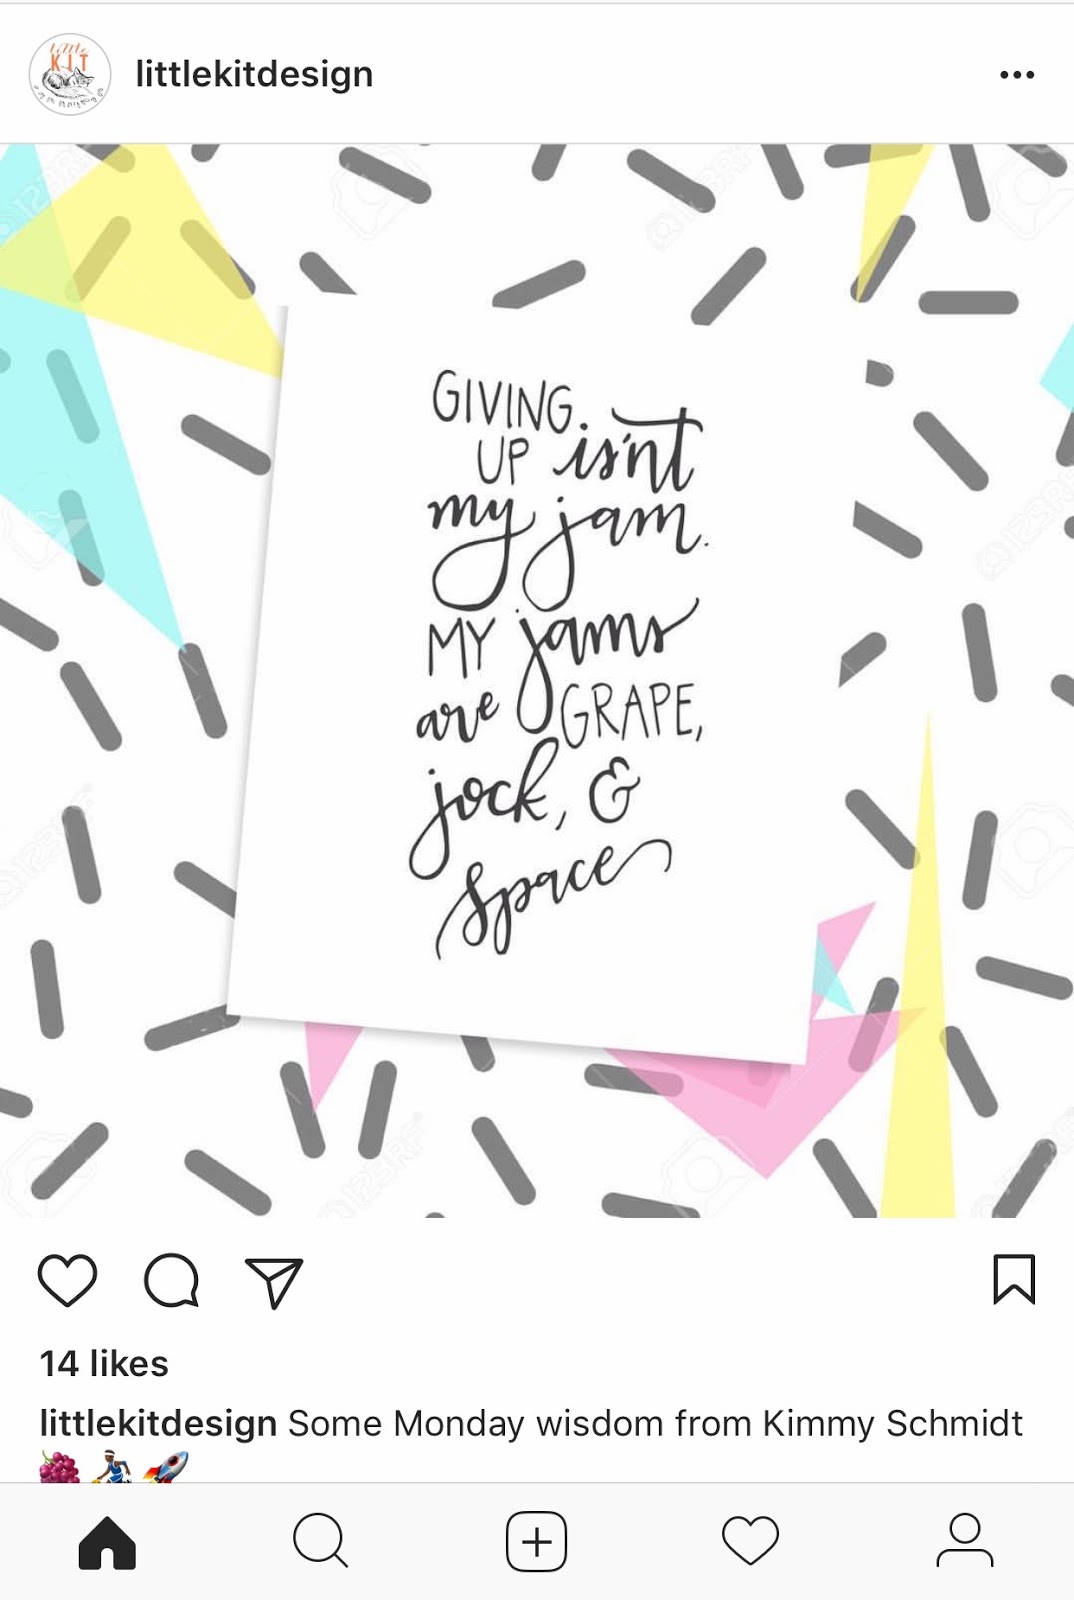 little
KIT
littlekitdesign
GIVING
UP isn't
my jam.
MY jams
are GRAPE,
jock, &
space
14 likes
littlekitdesign Some Monday wisdom from Kimmy Schmidt